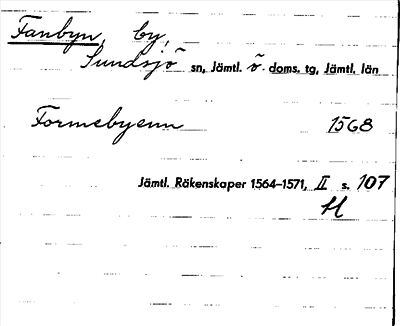 Fanbyn, by,
Sundsjö sn, Jämtl. ö. doms. tg, Jämtl. län
Formebyenn 1568
Jämtl. Räkenskaper 1564–1571, II s. 107
H